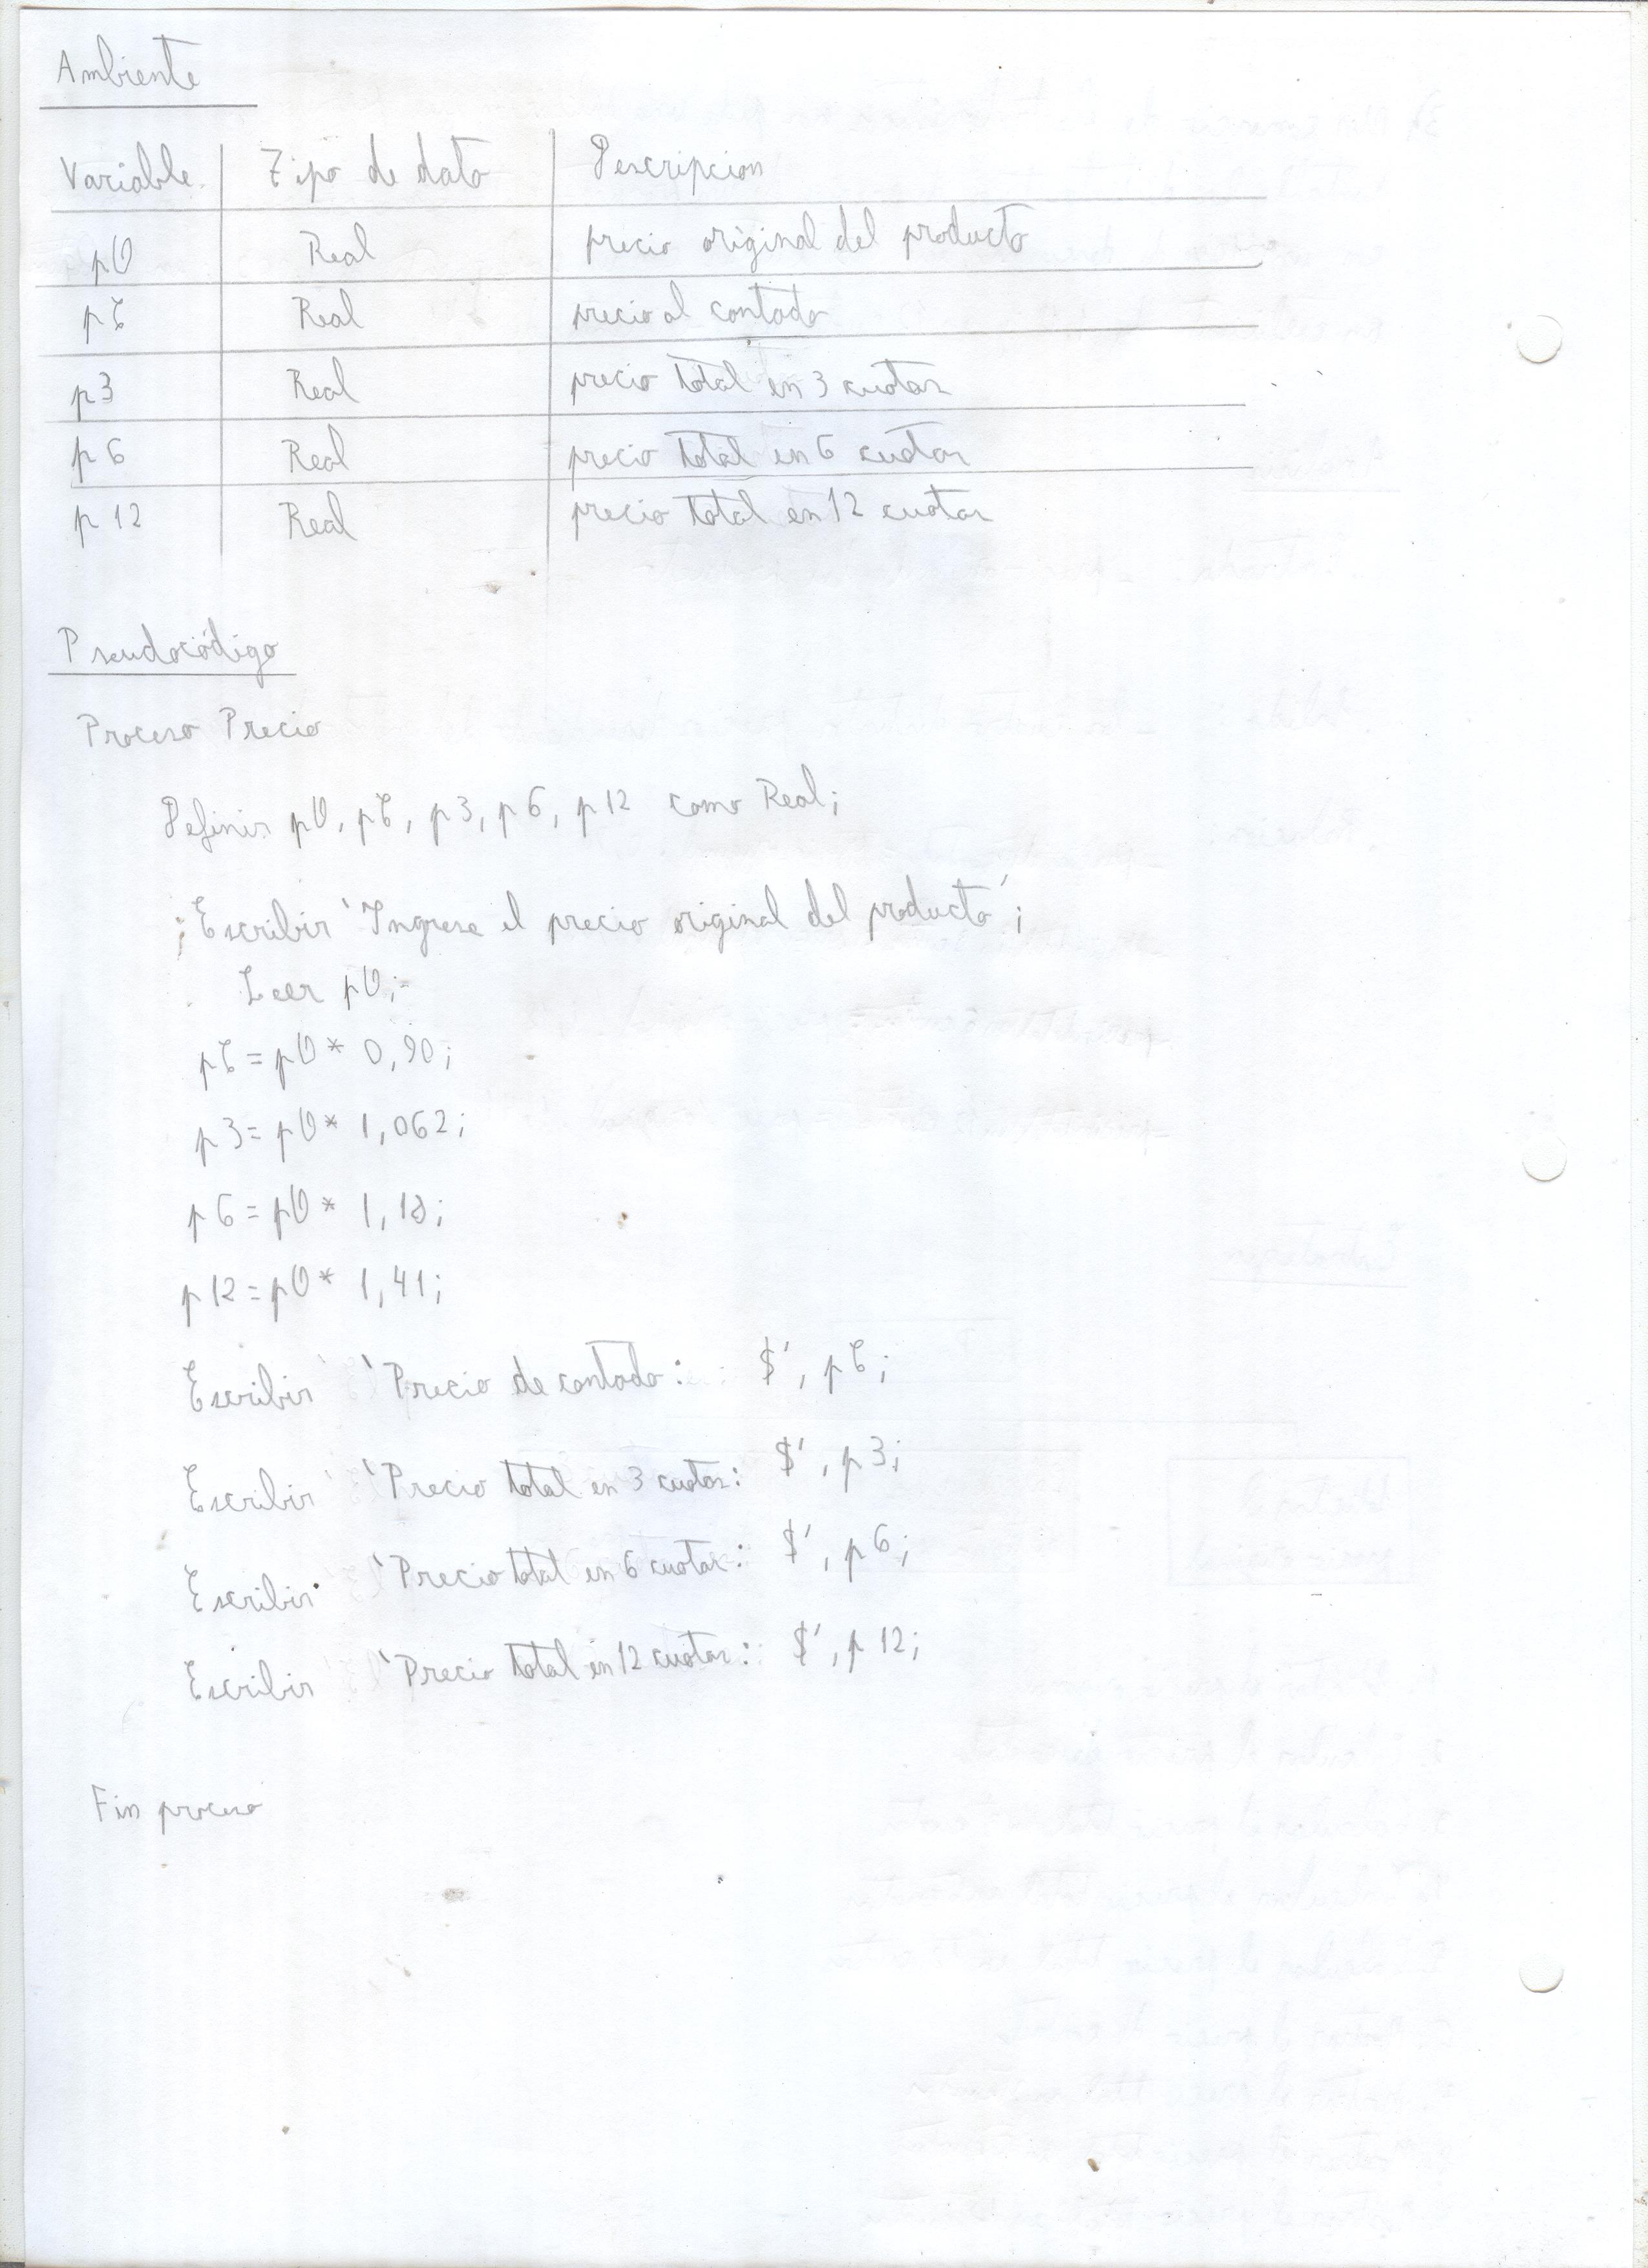 Ambiente
Variable Tipo de dato Descripcion
pO Real precio original del producto
pC Real precio al contado
p3 Real precio total en 3 cuotas
p6 Real precio total en 6 cuotas
p12 Real precio total en 12 cuotas
Pseudocódigo
Proceso Precio
Definir pO, pC, p3, p6, p12 como Real;
Escribir 'Ingrese el precio original del producto';
Leer pO;
pC = pO * 0,90;
p3 = pO * 1,062;
p6 = pO * 1,18;
p12 = pO * 1,41;
Escribir 'Precio de contado: $', pC;
Escribir 'Precio total en 3 cuotas: $', p3;
Escribir 'Precio total en 6 cuotas: $', p6;
Escribir 'Precio total en 12 cuotas: $', p12;
Fin proceso